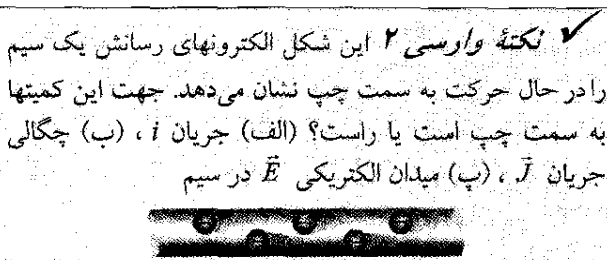 ✓ نکتهٔ وارسی ۲ این شکل الکترونهای رسانش یک سیم
را در حال حرکت به سمت چپ نشان می‌دهد. جهت این کمیتها
به سمت چپ است یا راست؟ (الف) جریان i ، (ب) چگالی
جریان J⃗ ، (پ) میدان الکتریکی E⃗ در سیم